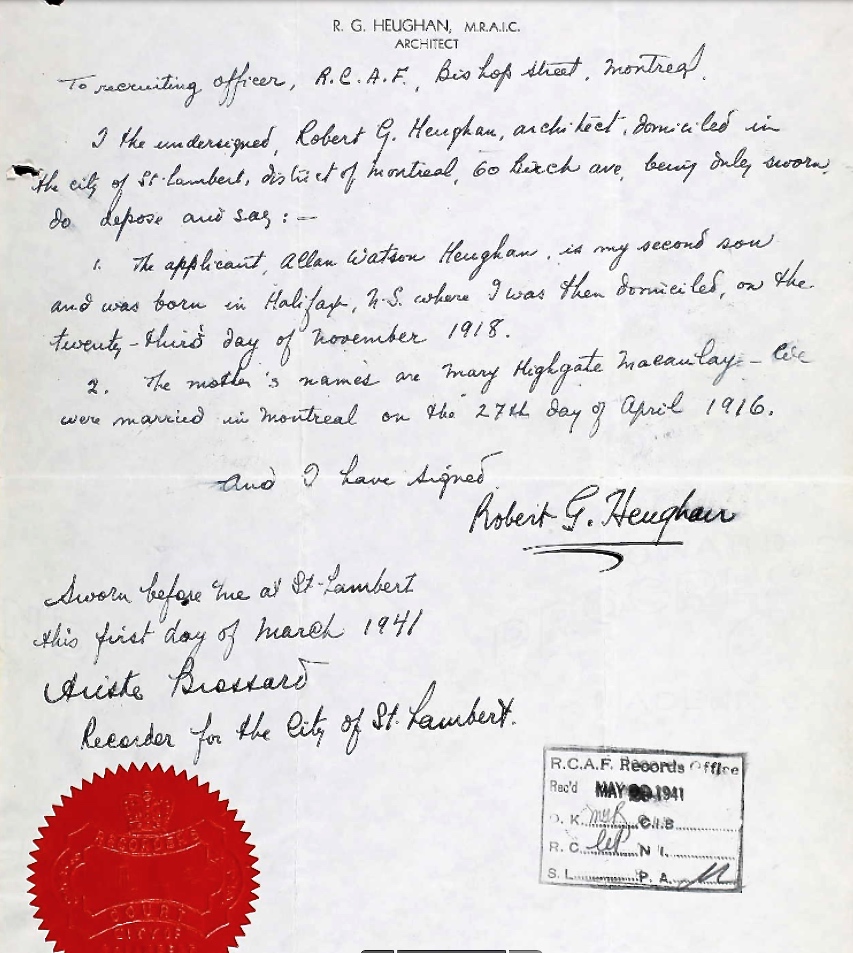 R. G. HEUGHAN, M.R.A.I.C.
ARCHITECT
To recruiting officer, R.C.A.F., Bishop street, Montreal.
I the undersigned, Robert G. Heughan, architect, domiciled in
the city of St-Lambert, district of Montreal, 60 Birch ave, being duly sworn,
do depose and say: —
1. The applicant, Allan Watson Heughan, is my second son
and was born in Halifax, N.S. where I was then domiciled, on the
twenty-third day of November 1918.
2. The mother's names are Mary Highgate Macaulay – We
were married in Montreal on the 27th day of April 1916.
And I have signed
Robert G. Heughan
Sworn before me at St-Lambert
this first day of March 1941
Ariste Brossard
Recorder for the City of St. Lambert.
R.C.A.F. Records Office
Rec'd MAY 1941
O. K. C.I.B.
R. C. N I.
S. L. P. A.
RECORDER'S
COURT